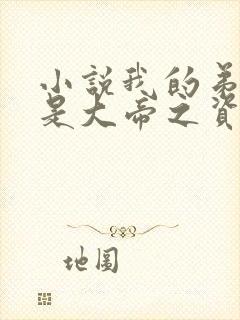 小説我的弟
是大帝之資
地圖